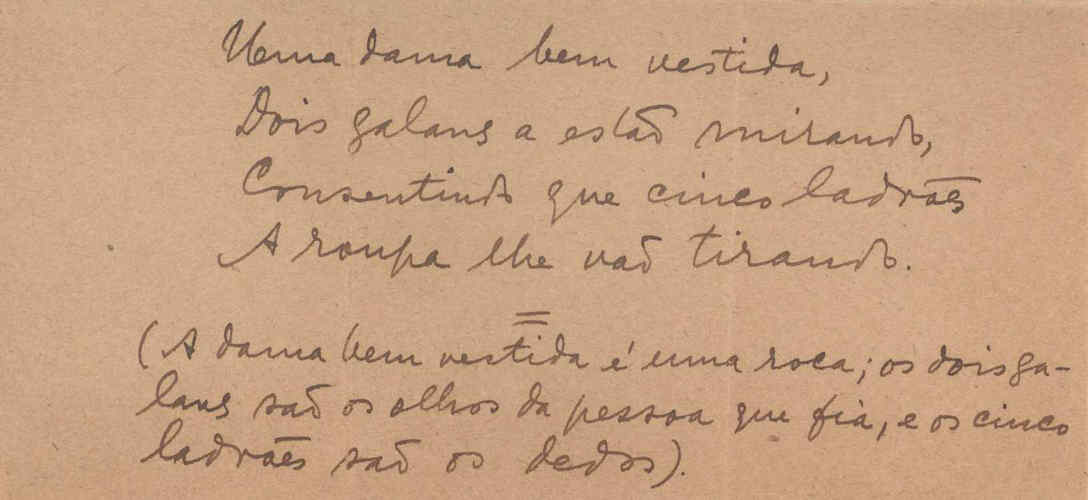 Uma dama bem vestida,
Dois galans a estão mirando,
Consentindo que cinco ladrões
A roupa lhe vão tirando.
=
(A dama bem vestida é uma roca; os dois ga-
lans são os olhos da pessoa que fia, e os cinco
ladrões são os dedos).